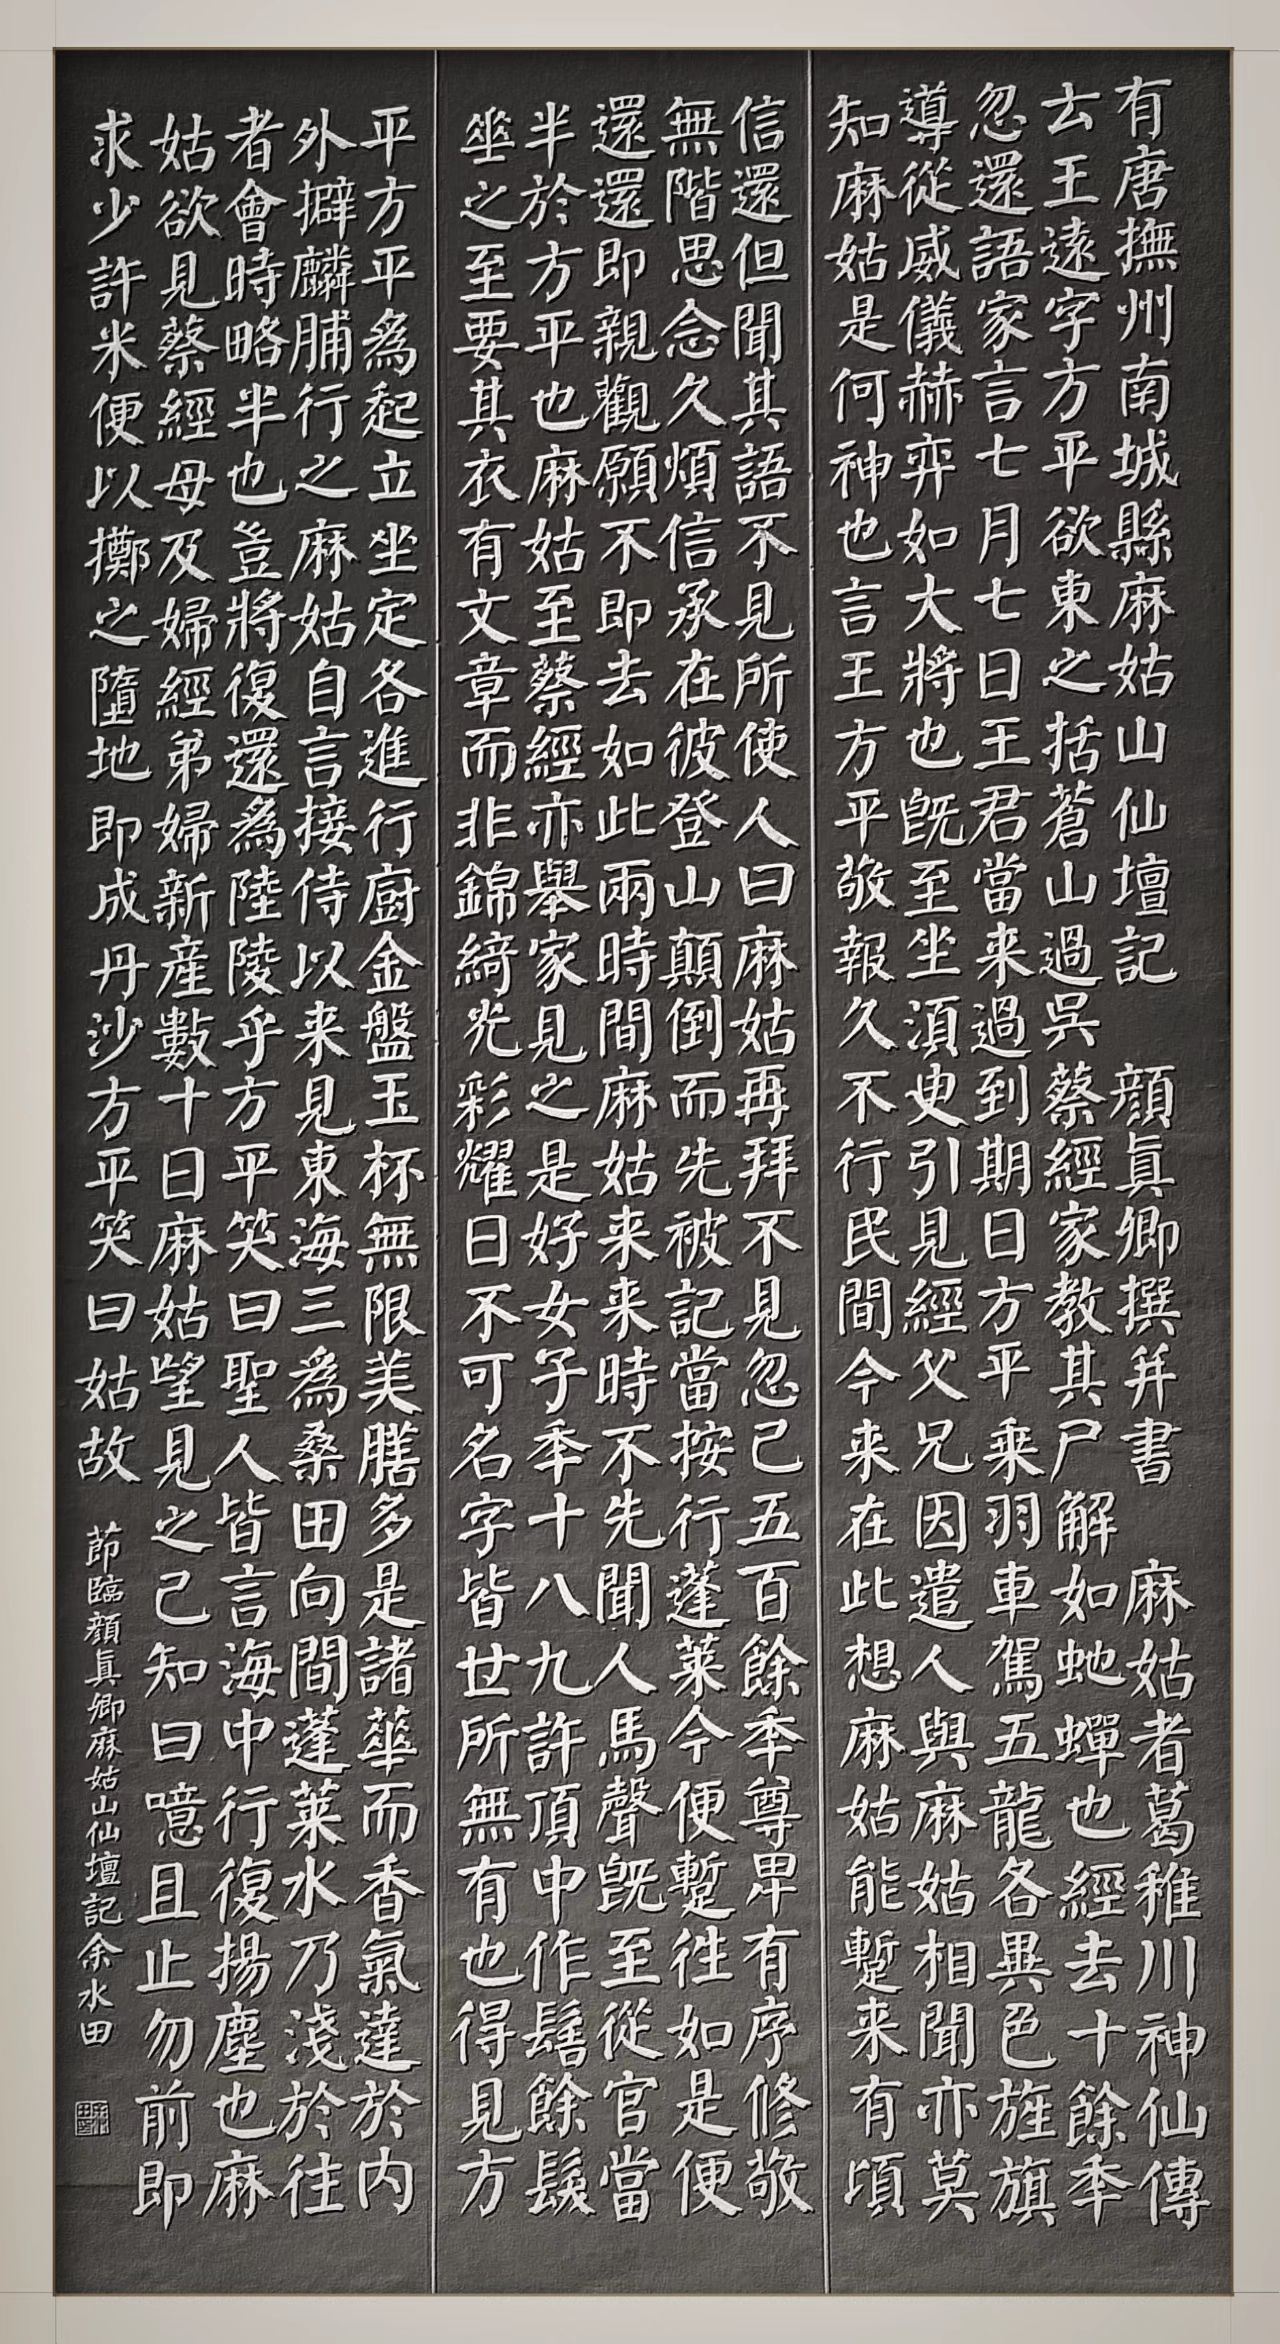 有唐撫州南城縣麻姑山仙壇記 顔眞卿撰并書 麻姑者葛稚川神仙傳
去王遠字方平欲東之括蒼山過吳蔡經家教其尸解如虵蟬也經去十餘秊
忽還語家言七月七日王君當来過到期日方平乗羽車駕五龍各異色旌旗
導從威儀赫弈如大將也旣至坐湏臾引見經父兄因遣人與麻姑相聞亦莫
知麻姑是何神也言王方平敬報久不行民間今来在此想麻姑能蹔来有頃
信還但聞其語不見所使人曰麻姑再拜不見忽已五百餘秊尊卑有序修敬
無階思念久煩信承在彼登山顛倒而先被記當按行蓬萊今便蹔往如是便
還還即親觀願不即去如此兩時間麻姑来来時不先聞人馬聲旣至從官當
半於方平也麻姑至蔡經亦舉家見之是好女子秊十八九許頂中作髻餘髮
垂之至要其衣有文章而非錦綺光彩耀日不可名字皆世所無有也得見方
平方平為起立坐定各進行廚金盤玉杯無限美膳多是諸華而香氣達於内
外擗麟脯行之麻姑自言接侍以来見東海三為桑田向間蓬萊水乃淺於往
者會時略半也豈將復還為陸陵乎方平笑曰聖人皆言海中行復揚塵也麻
姑欲見蔡經母及婦經弟婦新産數十日麻姑望見之已知曰噫且止勿前即
求少許米便以擲之墮地即成丹沙方平笑曰姑故
節臨顔眞卿麻姑山仙壇記余水田